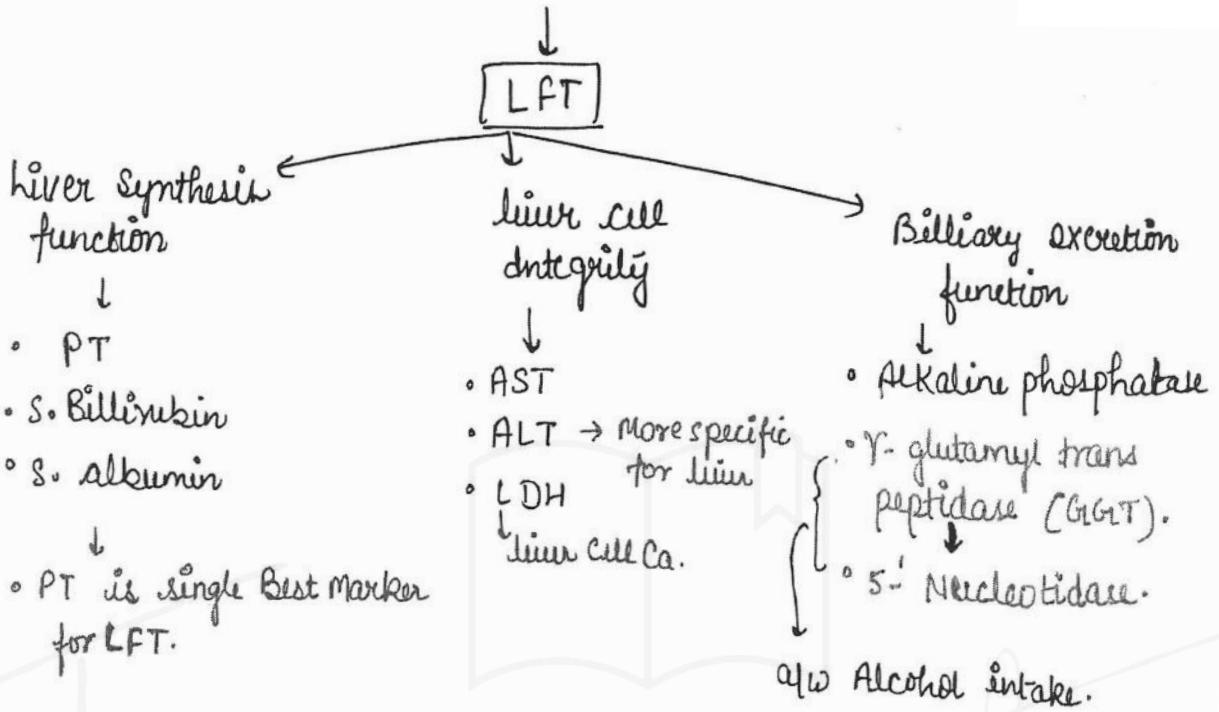 LFT
Liver Synthesis
function
• PT
• S. Billirubin
• S. albumin
• PT is single Best Marker
for LFT.
liver cell
Integrity
• AST
• ALT → More specific
for liver
• LDH
liver Cell Ca.
Billiary excretion
function
• Alkaline phosphatase
• γ- glutamyl trans
peptidase (GGT).
• 5-' Nucleotidase.
a/w Alcohol intake.